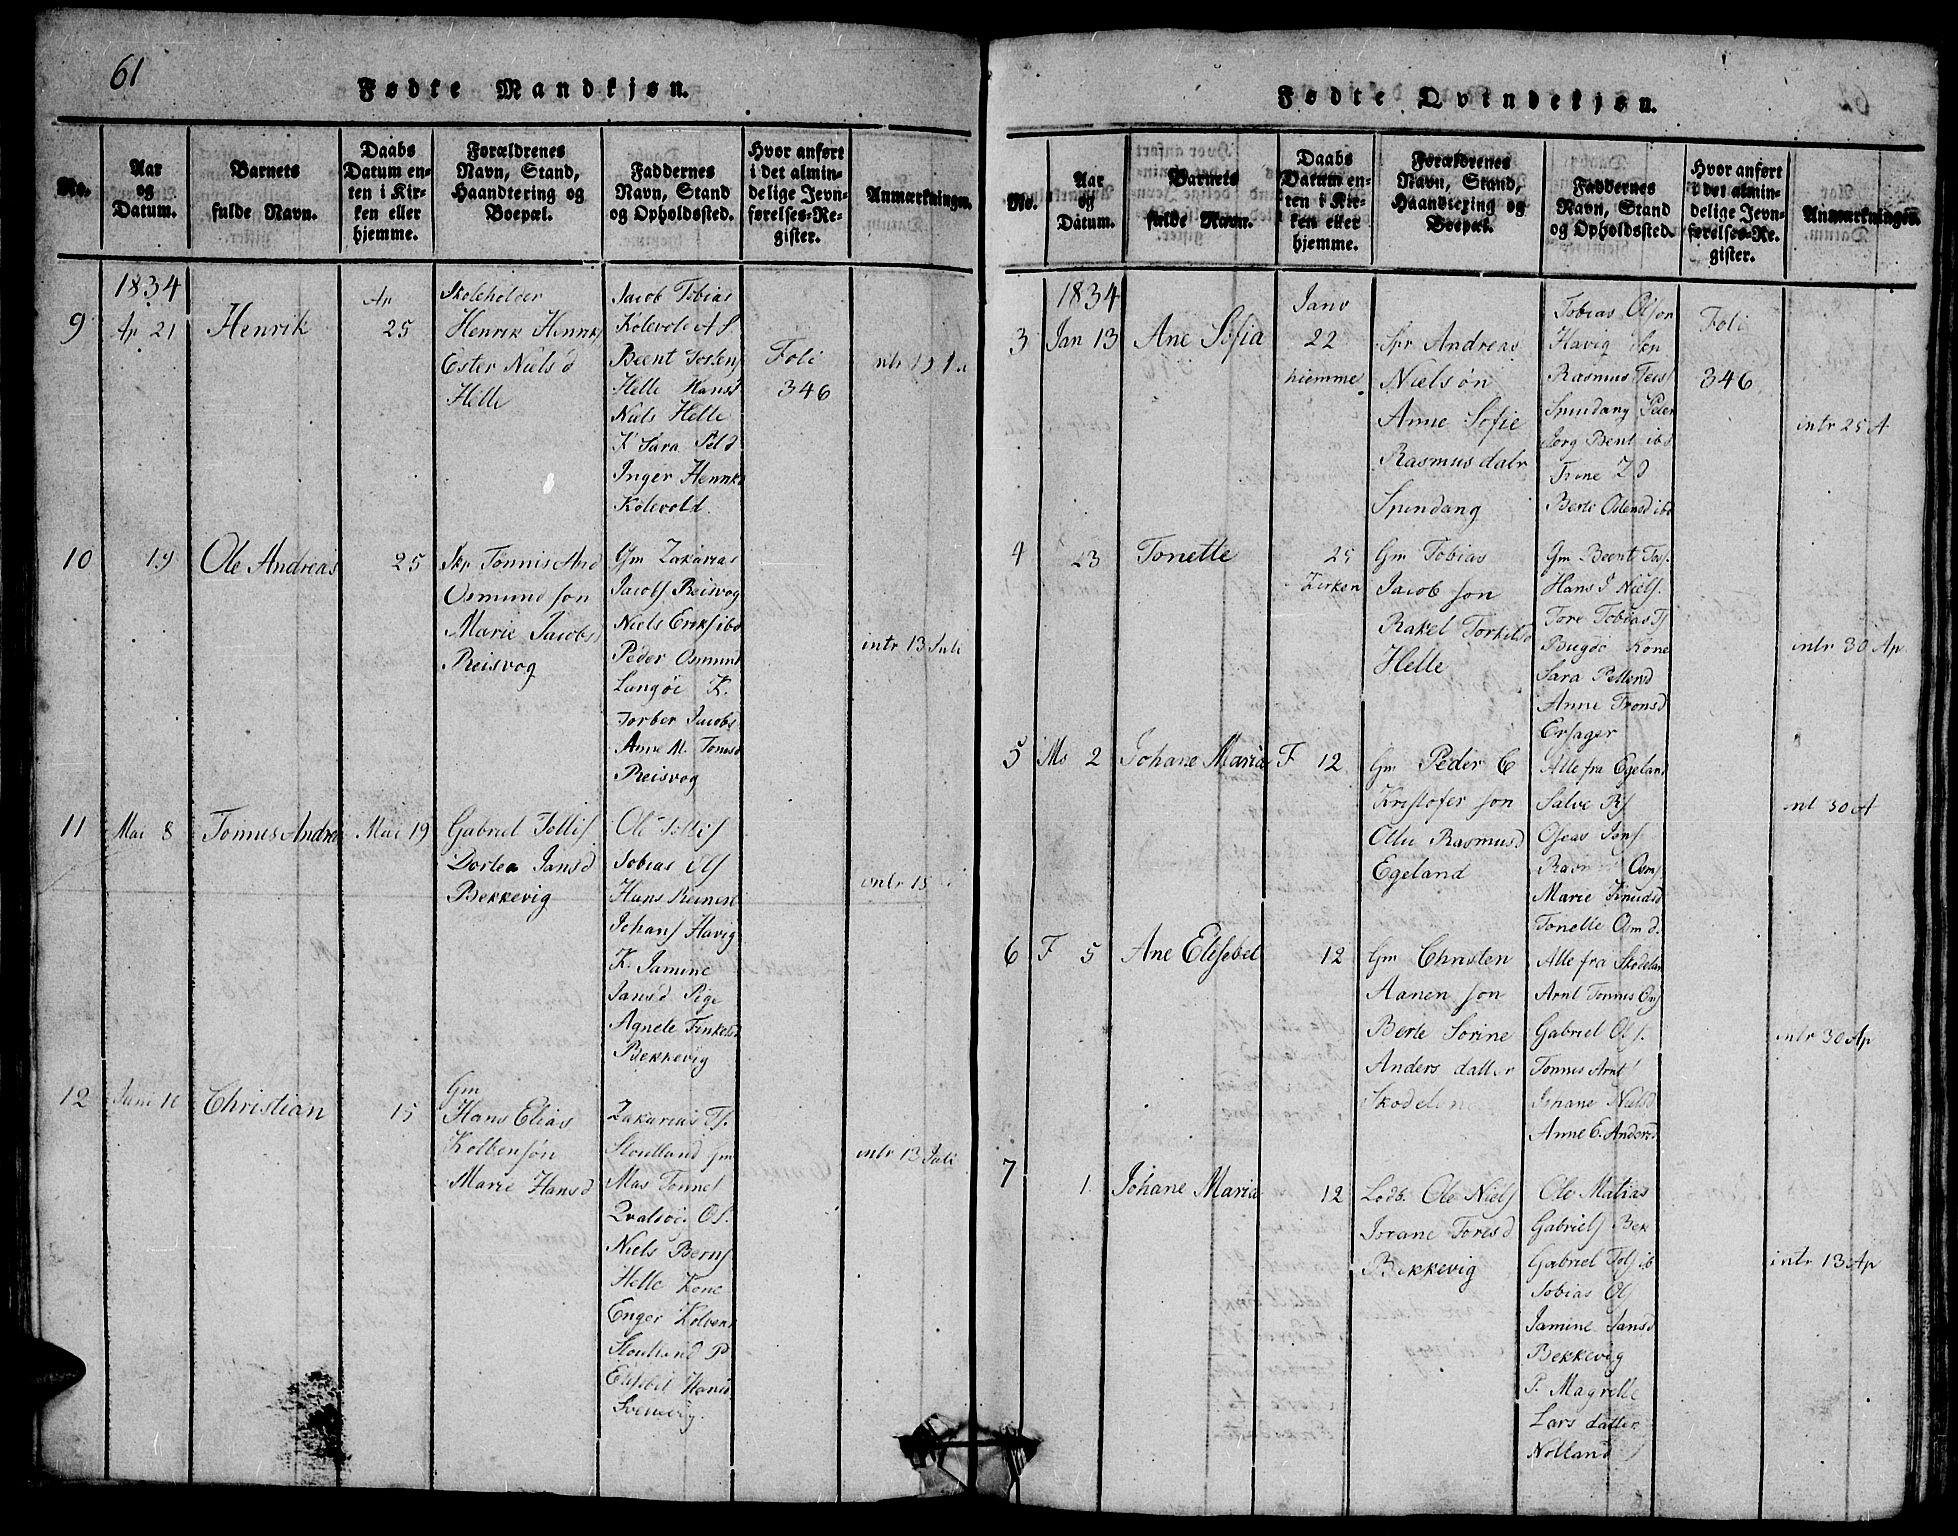 61
Fødte Mandkjøn.
No.
Aar
og
Datum.
Barnets
fulde Navn.
Daabs
Datum en-
ten i Kir-
ken eller
hjemme.
Forældrenes
Navn, Stand,
Haandtering og
Boepæl.
Faddernes
Navn, Stand
og Opholdssted.
Hvor anført
i det almin-
delige Jevn-
førelses-Re-
gister.
Anmærkninger.
1834
9
Ap 21
Henrik
Ap
25
Skoleholder
Henrik Henriks
Ester Niels d
Helle
Jacob Tobias
Kolevole A S
Beent Tostens
Helle Hans
Niels Helle
K Sara Pel d
Inger Henriks
Kolevold.
Foli
346
10
19
Ole Andreas
25
Skp Tønnis And
Osmund søn
Marie Jacobs
Reisvog
Gm Zakarias
Jacobs Reisvog
Niels Eriks ibd
Peder Osmuns
Langøe K.
Torber Jacobs
Anne M. Tønesd
Reisvog
intr 13 Juli
11
Mai 8
Tønnes Andre
Mai 19
Gabriel Tollis
Dortea Jansd
Bekkevig
Ole Tollis
Tobias Ols
Hans Reiners
Johans Havig
K. Jamine
Jansd Pige
Agnete Tenkelsd
Bekkevig
intr 15
12
Juni 10
Christian
15
Gm
Hans Elias
Kolbensøn
Marie Hansd
Zakarias Ts.
Stoutland Gm
Mas Tønnes
Qvalsøe Os.
Niels Berns
Helle Kone
Enger Kolbens
Stoutland P
Elisebet Hansd
Svenevig.
intr 13 Juli
62
Fødte Qvindekjøn.
No.
Aar
og
Datum.
Barnets
fulde Navn.
Daabs
Datum en-
ten i Kir-
ken eller
hjemme.
Forældrenes
Navn, Stand,
Haandtering og
Boepæl.
Faddernes
Navn, Stand
og Opholdssted.
Hvor anført
i det almin-
delige Jevn-
førelses-Re-
gister.
Anmærkninger.
1834
3
Jan 13
Ane Sofia
Janv
22
hiemme
Spr Andreas
Nielsøn
Anne Sofie
Rasmus datr
Spindang
Tobias Olsøn
Havig Skp
Rasmus Teis
Spindang Peder
Jørg Bent ibd
Trine
Berte Osensd ibd
Foli
346
intr 25 A
4
23
Tonette
25
Kirken
Gm Tobias
Jacob søn
Rakel Torkilsd
Helle
Gm Beent Tos.
Hans P Niels.
Tore Tobias Ts
Bugde Kone
Sara Pettersd
Anne Tronsd
Ersager
intr 30 Ap
5
Ms 2
Johane Maria
F 12
Gm Peder C
Kristofer søn
Ollu Rasmusd
Egeland
Alle fra Egeland
Salve Rs
Oseas Jans
Rasm Osm
Marie Knudsd
Tonette Osm d.
nt 30 A
6
F 5
Ane Elisebet
12
Gm Christen
Aanen søn
Berte Sorine
Anders datter
Skodeline
Alle fra Skodelan
Arnt Tønnes Ons
Gabriel Ols.
Tønnes Arnt
Jorane Nielsd
Anne E. Andersd
intr 30 Ap
7
1.
Johane Maria
12
Lods. Ole Niels
Jorane Toresd
Bekkevig
Ole Matias
Gabriels Bek
Gabriel Tols ib
Tobias Ols
Jamine Jansd
Bekkevig
P. Magrette
Lars datter
Nolland
intr 13 Ap